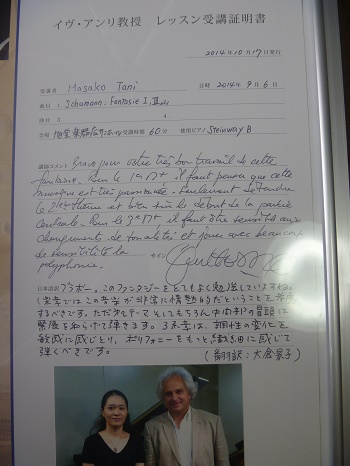 イヴ・アンリ教授 レッスン受講証明書
2014年10月17日発行
受講者 Masako Tani 日時 2014年9月6日
曲目 1. Schumann: Fantasie I, III
3. 4.
会場 受講時間 60分 使用ピアノ Steinway B
講師コメント Bravo pour votre très bon travail de cette
fantaisie. Sur le 1er Mt il faut penser que cette
musique est très passionnée. Seulement détendre
le 2ème thème et bien sûr le début de la partie
centrale. Sur le 3e Mt il faut être sensible aux
changements de tonalités et jouer avec beaucoup
de sensibilité la
polyphonie.
サイン
日本語訳 ブラボー。このファンタジーをとてもよく勉強していますね。
1楽章ではこの音楽が非常に情熱的だということを
するべきです。ただ第2テーマとしてもちろん中間部の冒頭は
緊張を和らげて弾きます。3楽章は、調性の変化を
敏感に感じとり、ポリフォニーをもっと繊細に感じて
弾くべきです。
(翻訳:大倉景子)